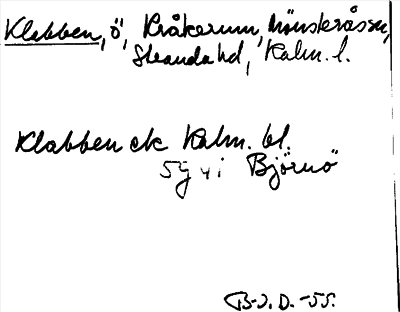 Klabben, ö, Kråkerum, Mönsteråssn,
Stranda hd, Kalm. l.
Klabben ek Kalm. bl.
59 4 i Björnö
B-J. D. -55.